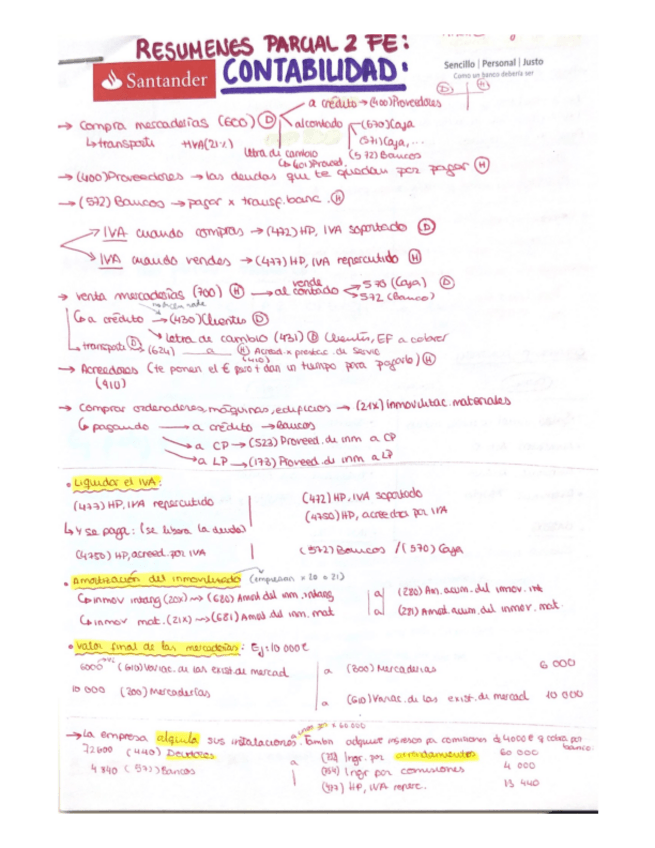 RESUMENES PARCIAL 2 FE:
Santander
CONTABILIDAD:
Sencillo | Personal | Justo
Como un banco debería ser
(D) (H)
→ Compra mercaderías (600) (D) a crédito → (400) Proveedores
al contado (570) Caja
↳ transporte +IVA (21%) (571) Caja,...
letra de cambio (572) Bancos
↳ (401) Proveed.
→ (400) Proveedores → las deudas que te quedan por pagar (H)
→ (572) Bancos → pagar x transf. banc. (H)
IVA cuando compras → (472) HP, IVA soportado (D)
IVA cuando vendes → (477) HP, IVA repercutido (H)
→ venta mercaderías (700) (H) → al contado vende 570 (Caja) (D)
572 (Banco)
↳ a crédito → (430) Clientes (D)
→ letra de cambio (431) (D) Clientes, EF a cobrar
↳ transporte (D) → (624) a (H) Acreed x prestac. de Servic
(410)
→ Acreedores (te ponen el € pero t dan un tiempo para pagarlo) (H)
(410)
→ Comprar ordenadores, máquinas, edificios → (21x) Inmovilizac. materiales
↳ pagando → a crédito → Bancos
→ a CP → (523) Proveed. de inm a CP
→ a LP → (173) Proveed. de inm a LP
• Liquidar el IVA:
(477) HP, IVA repercutido | (472) HP, IVA soportado
(4750) HP, acreedora por IVA
↳ Y se paga: (se libera la deuda)
(4750) HP, acreed. por IVA | (572) Bancos / (570) Caja
• Amortización del inmovilizado (empiezan x 20 o 21)
↳ inmov intang (20x) → (680) Amort del inm. intang a (280) Am. acum. del inmov. int
↳ inmov mat. (21x) → (681) Amort del inm. mat a (281) Amort. acum. del inmov. mat.
• Valor final de las mercaderías: Ej: 10 000€
6000 (610) Variac. de las exist. de mercad a (300) Mercaderías 6 000
10 000 (300) Mercaderías a (610) Variac. de las exist. de mercad 10 000
→ La empresa alquila sus instalaciones x 60 000. También adquiere ingresos por comisiones de 4000€ q cobra por banco.
72600 (440) Deudores a (752) Ingr. por arrendamientos 60 000
4 840 (572) Bancos (754) Ingr por comisiones 4 000
(477) HP, IVA reperc. 13 440